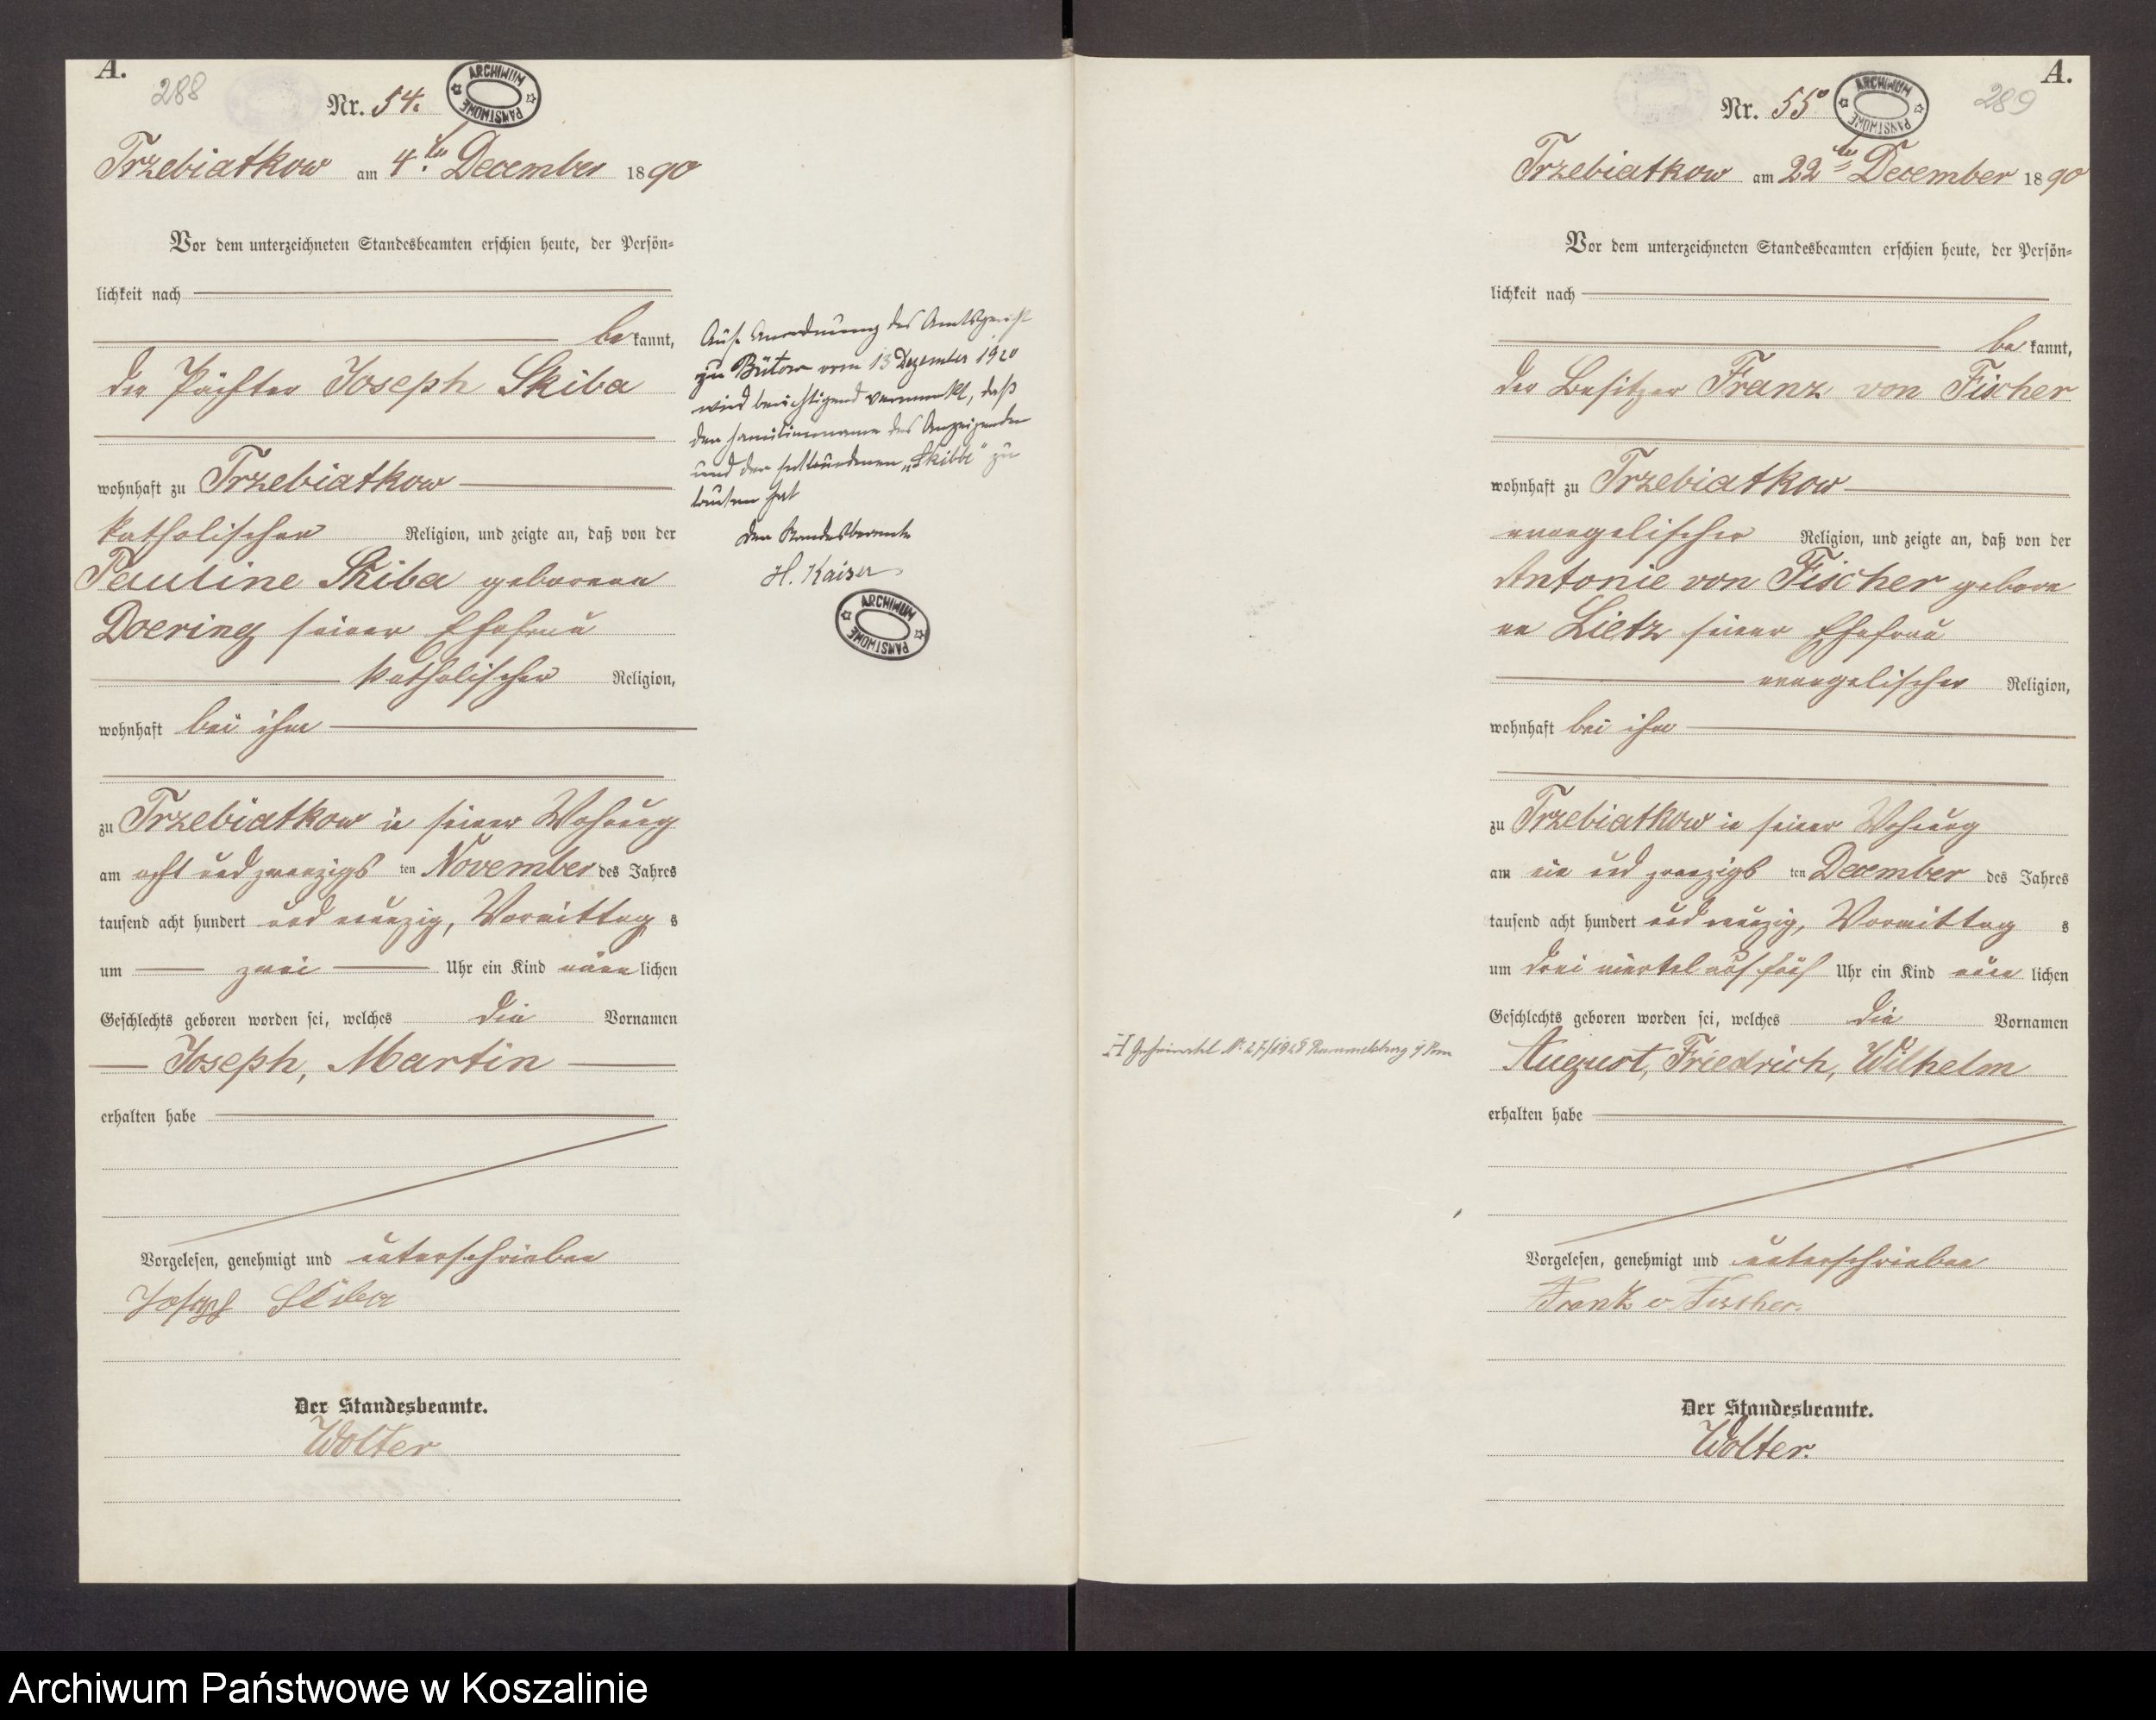 A.
288
Nr. 54.
ARCHIWUM PAŃSTWOWE
Trzebiatkow am 4.ten December 1890
Vor dem unterzeichneten Standesbeamten erschien heute, der Persön-
lichkeit nach
be kannt,
der Pächter Joseph Skiba
wohnhaft zu Trzebiatkow
katholischer Religion, und zeigte an, daß von der
Pauline Skiba geborenen
Doering seiner Ehefrau
katholischer Religion,
wohnhaft bei ihm
zu Trzebiatkow in seiner Wohnung
am acht und zwanzigs ten November des Jahres
tausend acht hundert und neunzig, Vormittag s
um zwei Uhr ein Kind männ lichen
Geschlechts geboren worden sei, welches die Vornamen
Joseph, Martin
erhalten habe
Vorgelesen, genehmigt und unterschrieben
Joseph Skiba
Der Standesbeamte.
Wolter
Auf Anordnung des Amtsgericht
zu Bütow vom 13 Dezember 1920
wird berichtigend vermerkt, daß
der Familienname des Anzeigenden
und der Entbundenen „Skibbe" zu
lauten hat
Der Standesbeamte
H. Kaiser
ARCHIWUM PAŃSTWOWE
A.
289
Nr. 55
ARCHIWUM PAŃSTWOWE
Trzebiatkow am 22ten December 1890
Vor dem unterzeichneten Standesbeamten erschien heute, der Persön-
lichkeit nach
be kannt,
der Besitzer Franz von Fischer
wohnhaft zu Trzebiatkow
evangelischer Religion, und zeigte an, daß von der
Antonie von Fischer gebore
ne Lietz seiner Ehefrau
evangelischer Religion,
wohnhaft bei ihm
zu Trzebiatkow in seiner Wohnung
am ein und zwanzigs ten December des Jahres
tausend acht hundert und neunzig, Vormittag s
um drei viertel auf fünf Uhr ein Kind männ lichen
Geschlechts geboren worden sei, welches die Vornamen
August, Friedrich, Wilhelm
erhalten habe
Vorgelesen, genehmigt und unterschrieben
Franz v Fischer.
Der Standesbeamte.
Wolter.
Nr 27/1928 Rummelsburg i/Pom
Archiwum Państwowe w Koszalinie